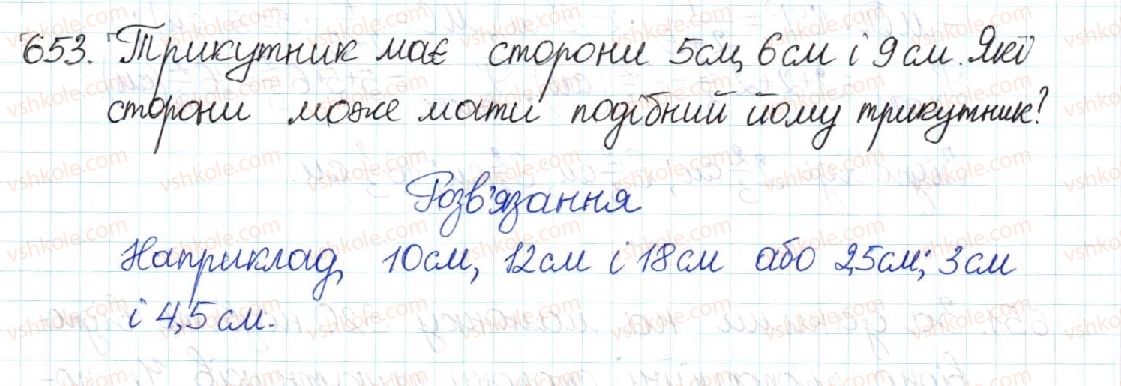 653. Трикутник має сторони 5см, 6см і 9см. Які
сторони може мати подібний йому трикутник?
Розв'язання
Наприклад, 10см, 12см і 18см або 2,5см; 3см
і 4,5см.